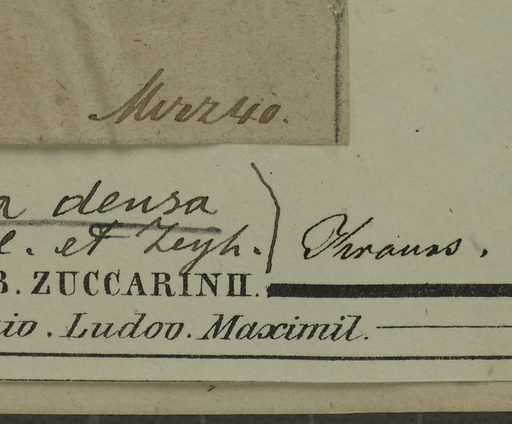 Merz 40.
a densa
et Zeyh.) Krauss.
B. ZUCCARINII.
io. Ludov. Maximil.